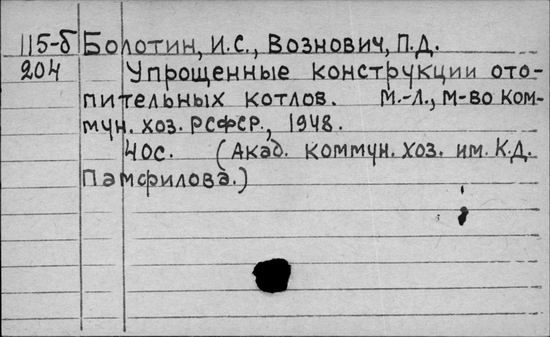 115-б Болотин, И.С., Вознович, П.Д.
204 Упрощенные конструкции ото-
пительных котлов. М.-Л., М-во ком-
мун. хоз. РСФСР., 1948.
40с. (Акад. коммун. хоз. им. К.Д.
Памфилова.)